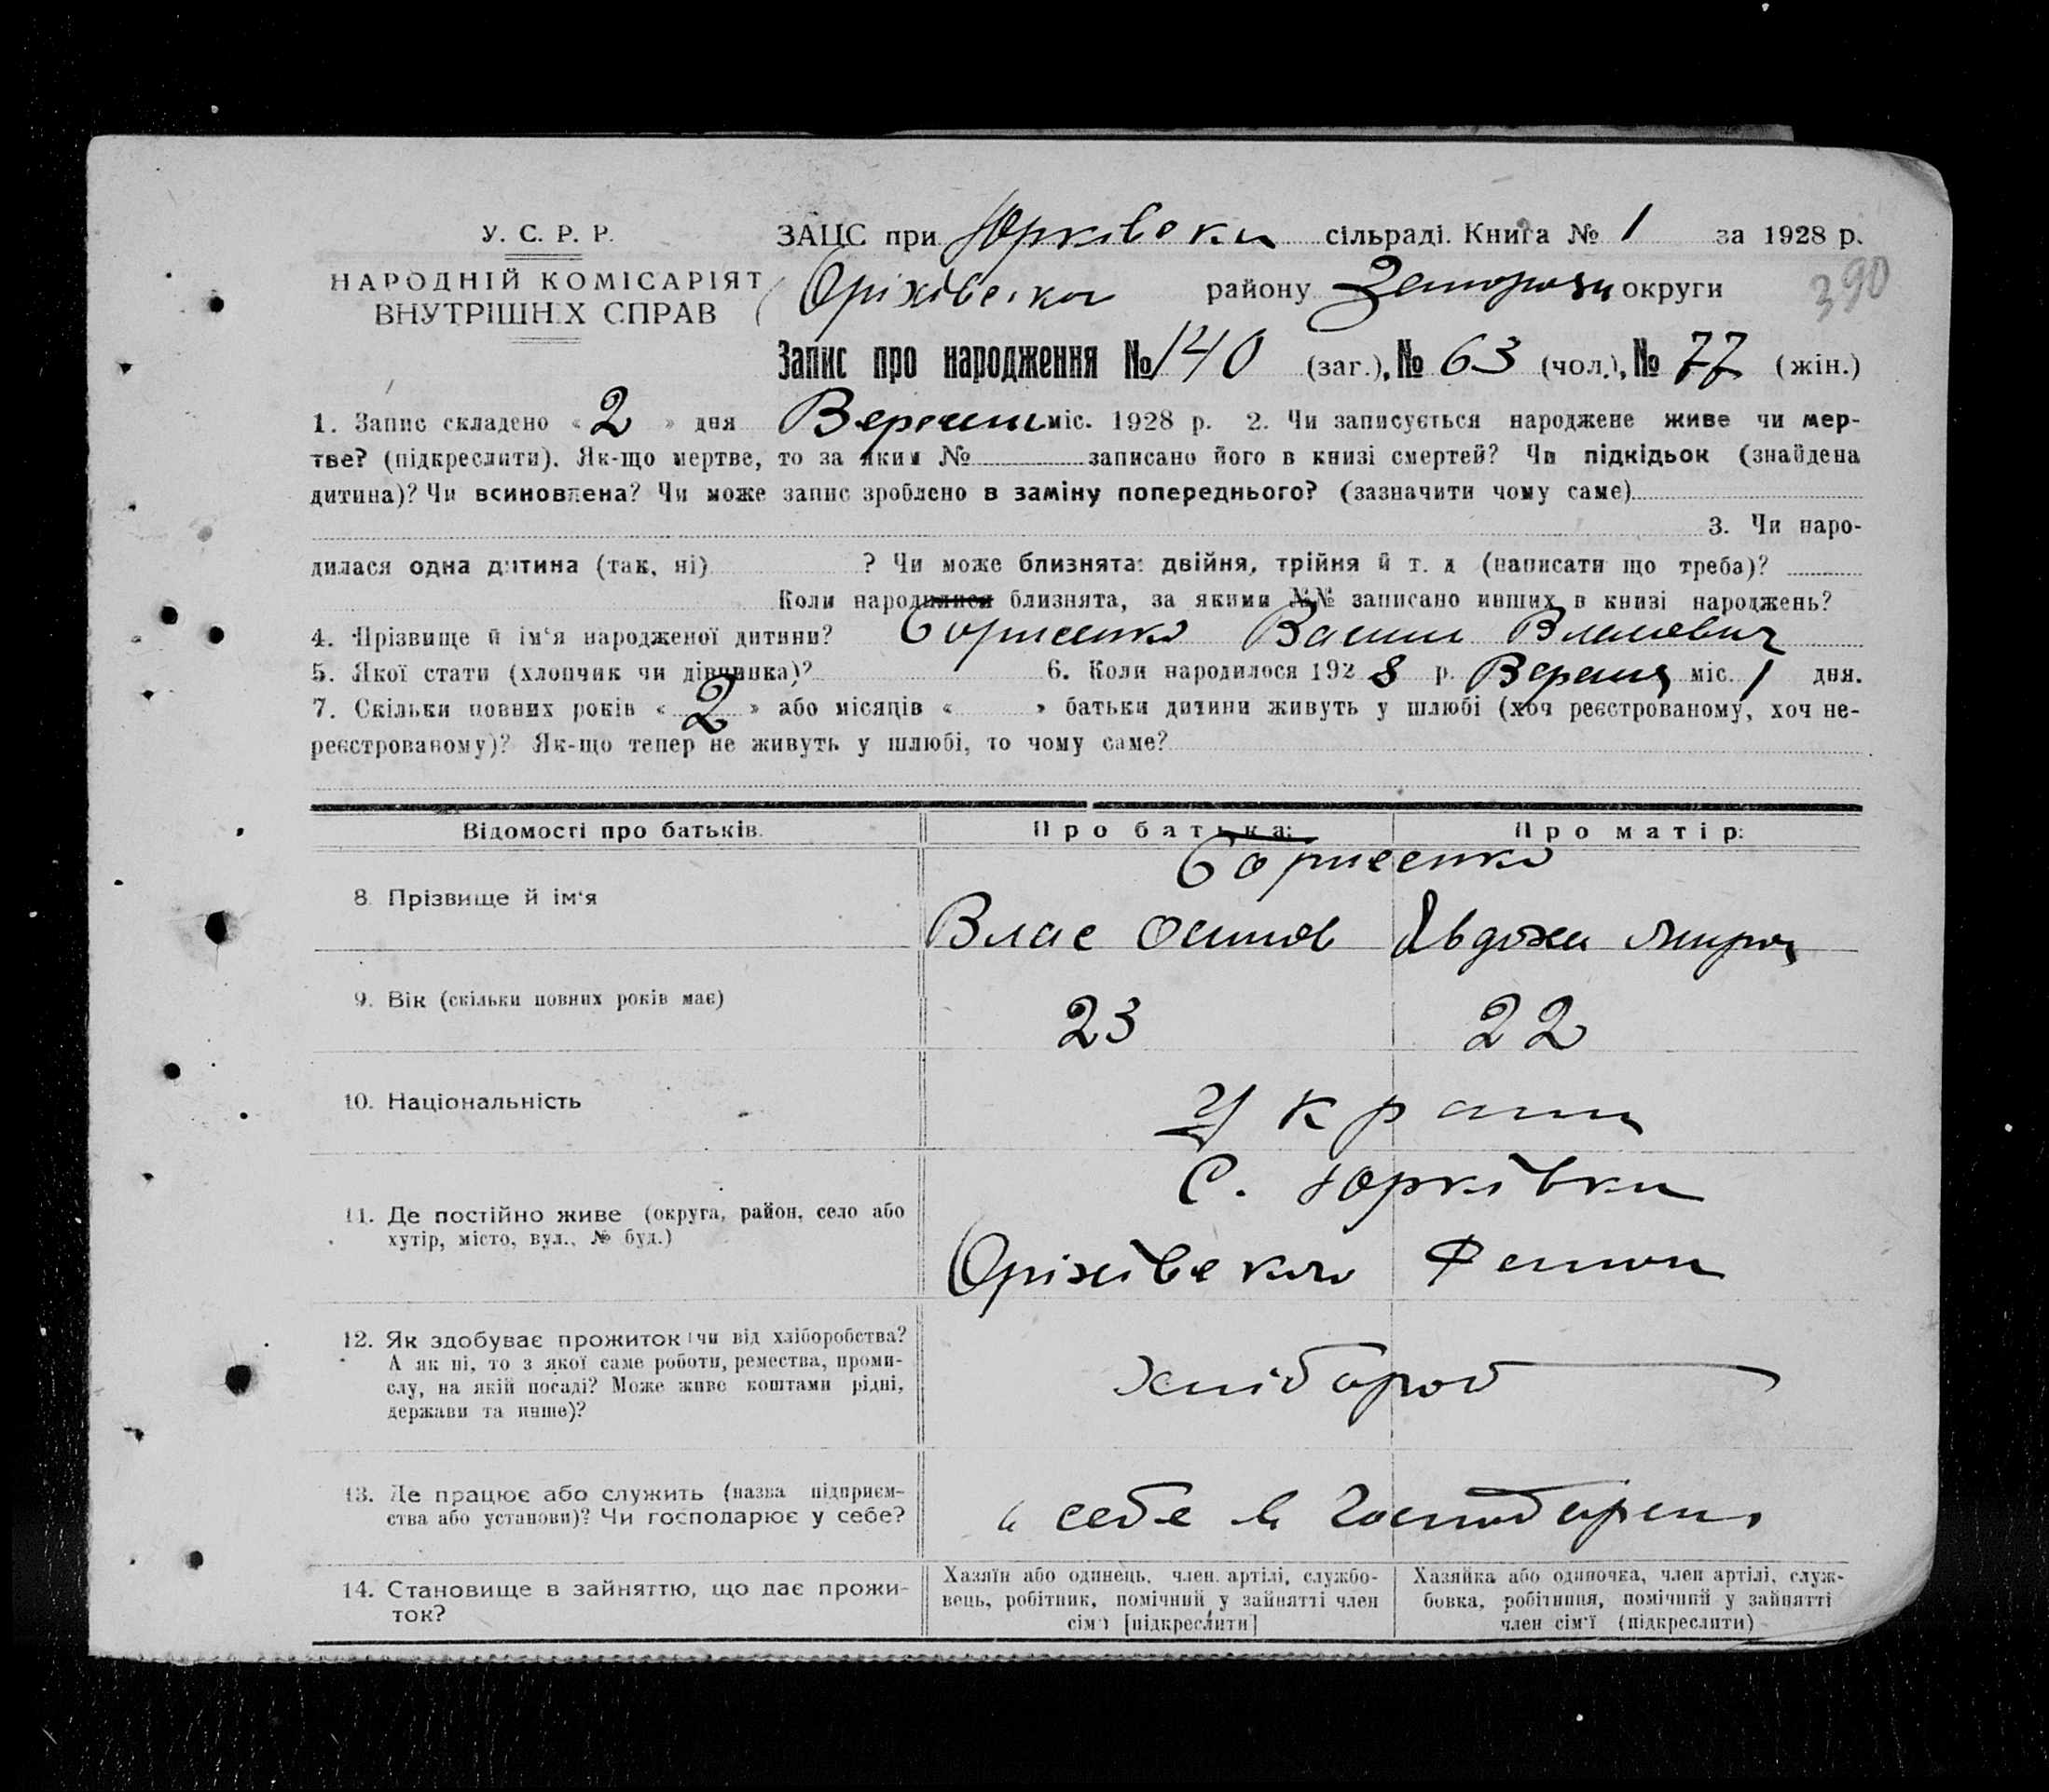 У. С. Р. Р.
НАРОДНІЙ КОМІСАРІЯТ
ВНУТРІШНІХ СПРАВ
ЗАЦС при Юрківськи сільраді. Книга № 1 за 1928 р.
Оріхівська району округи
390
Запис про народження № 140 (заг.), № 63 (чол.), № 77 (жін.)
1. Запис складено « 2 » дня міс. 1928 р. 2. Чи записується народжене живе чи мер-
тве? (підкреслити). Як-що мертве, то за яким № записано його в книзі смертей? Чи підкідьок (знайдена
дитина)? Чи всиновлена? Чи може запис зроблено в заміну попереднього? (зазначити чому саме)
3. Чи наро-
дилася одна дитина (так, ні) ? Чи може близнята: двійня, трійня й т. д (написати що треба)?
Коли народилися близнята, за якими №№ записано инших в книзі народжень?
4. Прізвище й ім‘я народженої дитини? Борисенко Васил Власович
5. Якої стати (хлопчик чи дівчинка)? 6. Коли народилося 1928 р. міс. 1 дня.
7. Скільки повних років « 2 » або місяців « » батьки дитини живуть у шлюбі (хоч реєстрованому, хоч не-
реєстрованому)? Як-що тепер не живуть у шлюбі, то чому саме?
Відомості про батьків. Про батька: Про матір:
Борисенко
8. Прізвище й ім‘я
Влас Осипов Явдоха
9. Вік (скільки повних років має)
23 22
10. Національність
Украин
С. Юрківки
11. Де постійно живе (округа, район, село або
хутір, місто, вул., № буд.)
Оріхівского
12. Як здобуває прожиток (чи від хліборобства?
А як ні, то з якої саме роботи, ремества, проми-
слу, на якій посаді? Може живе коштами рідні,
держави та инше)?
Хлібороб
13. Де працює або служить (назва підприєм-
ства або установи)? Чи господарює у себе?
себе в
14. Становище в зайняттю, що дає прожи-
ток?
Хазяїн або одинець, член артілі, службо-
вець, робітник, помічний у зайнятті член
сім‘ї [підкреслити]
Хазяйка або одиночка, член артілі, служ-
бовка, робітниця, помічний у зайнятті
член сім‘ї (підкреслити)